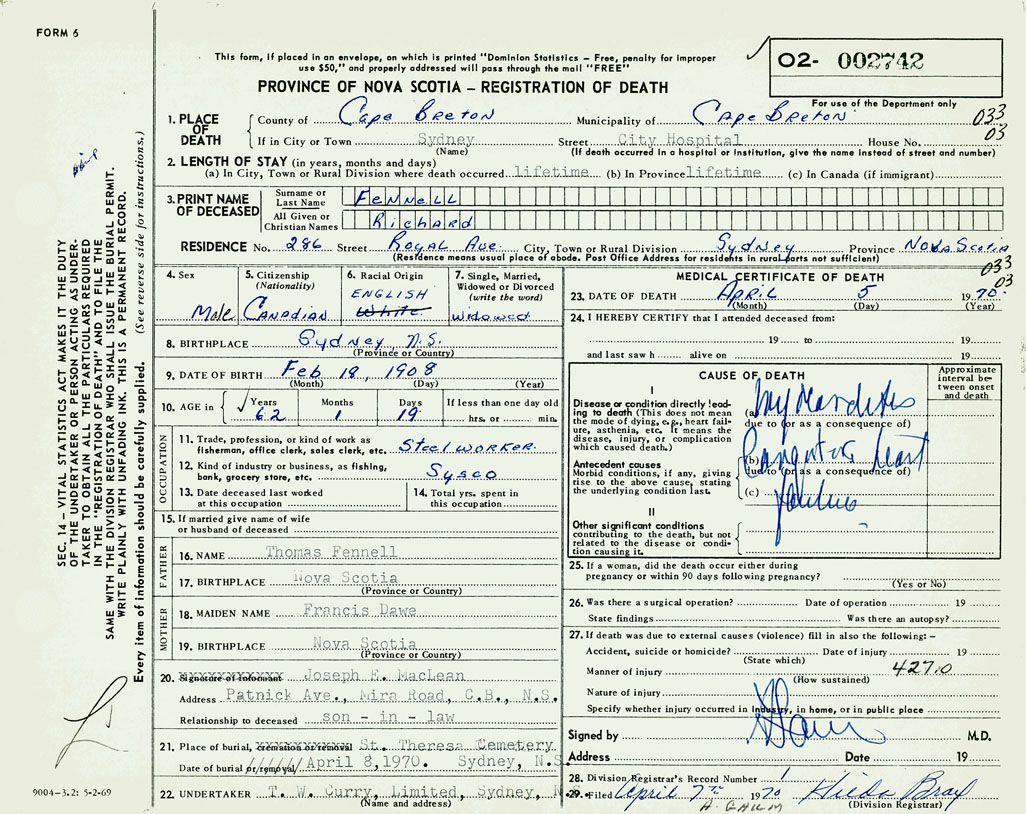 FORM 6
This form, if placed in an envelope, on which is printed "Dominion Statistics – Free, penalty for improper
use $50," and properly addressed will pass through the mail "FREE"
O2- 002742
PROVINCE OF NOVA SCOTIA – REGISTRATION OF DEATH
For use of the Department only
033
03
1. PLACE OF DEATH County of Cape Breton Municipality of Cape Breton
If in City or Town Sydney Street City Hospital House No.
(Name) (If death occurred in a hospital or institution, give the name instead of street and number)
2. LENGTH OF STAY (in years, months and days)
(a) In City, Town or Rural Division where death occurred lifetime (b) In Province lifetime (c) In Canada (if immigrant)
3. PRINT NAME OF DECEASED
Surname or Last Name Fennell
All Given or Christian Names Richard
RESIDENCE No. 286 Street Royal Ave City, Town or Rural Division Sydney Province Nova Scotia
(Residence means usual place of abode. Post Office Address for residents in rural ports not sufficient)
033
03
4. Sex
Male
5. Citizenship
(Nationality)
Canadian
6. Racial Origin
ENGLISH
White
7. Single, Married,
Widowed or Divorced
(write the word)
Widowed
8. BIRTHPLACE Sydney N.S.
(Province or Country)
9. DATE OF BIRTH Feb 18, 1908
(Month) (Day) (Year)
10. AGE in Years Months Days If less than one day old
62 1 19 hrs. or min.
OCCUPATION
11. Trade, profession, or kind of work as
fisherman, office clerk, sales clerk, etc. Steelworker
12. Kind of industry or business, as fishing,
bank, grocery store, etc. Sysco
13. Date deceased last worked
at this occupation
14. Total yrs. spent in
this occupation
15. If married give name of wife
or husband of deceased
FATHER
16. NAME Thomas Fennell
17. BIRTHPLACE Nova Scotia
(Province or Country)
MOTHER
18. MAIDEN NAME Francis Dawe
19. BIRTHPLACE Nova Scotia
(Province or Country)
20. Signature of informant Joseph E. MacLean
Address Patnick Ave., Mira Road, C.B., N.S.
Relationship to deceased son - in - law
21. Place of burial, cremation or removal St. Theresa Cemetery
Date of burial or removal April 8, 1970. Sydney, N.S.
22. UNDERTAKER T. W. Curry, Limited, Sydney, N.S.
(Name and address)
MEDICAL CERTIFICATE OF DEATH
23. DATE OF DEATH April 5 1970
(Month) (Day) (Year)
24. I HEREBY CERTIFY that I attended deceased from:
19 to
and last saw h alive on 19
CAUSE OF DEATH
Approximate
interval be-
tween onset
and death
I
Disease or condition directly lead-
ing to death (This does not mean
the mode of dying, e.g., heart fail-
ure, asthenia, etc. It means the
disease, injury, or complication
which caused death.)
(a) Myocarditis
due to (or as a consequence of)
Antecedent causes
Morbid conditions, if any, giving
rise to the above cause, stating
the underlying condition last.
(b) heart
due to (or as a consequence of)
(c) failure
II
Other significant conditions
contributing to the death, but not
related to the disease or condi-
tion causing it.
25. If a woman, did the death occur either during
pregnancy or within 90 days following pregnancy?
(Yes or No)
26. Was there a surgical operation? Date of operation 19
State findings Was there an autopsy?
27. If death was due to external causes (violence) fill in also the following: –
Accident, suicide or homicide? Date of injury 19
(State which)
Manner of injury 427.0
(How sustained)
Nature of injury
Specify whether injury occurred in industry, in home, or in public place
Signed by M.D.
Address Date 19
28. Division Registrar's Record Number 1
29. Filed April 7th 1970 Hilda Bray
(Division Registrar)
SEC. 14 – VITAL STATISTICS ACT MAKES IT THE DUTY
OF THE UNDERTAKER OR PERSON ACTING AS UNDER-
TAKER TO OBTAIN ALL THE PARTICULARS REQUIRED
IN THE "REGISTRATION OF DEATH" AND TO FILE THE
SAME WITH THE DIVISION REGISTRAR WHO SHALL ISSUE THE BURIAL PERMIT.
WRITE PLAINLY WITH UNFADING INK. THIS IS A PERMANENT RECORD.
Every item of information should be carefully supplied. (See reverse side for instructions.)
9004-3.2: 5-2-69